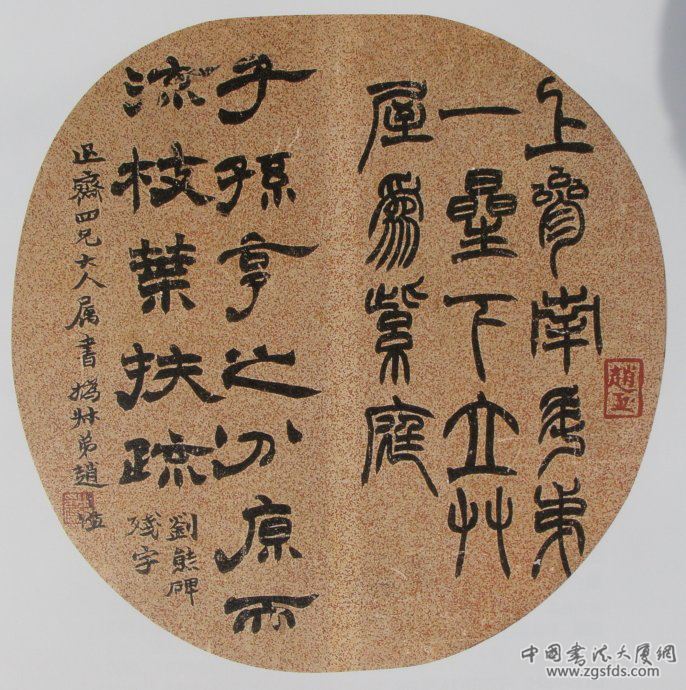 上參南斗弟
一星下立艸
屋為紫庭
子孫亨之分原而
流枝葉扶疏
劉熊碑
殘字
齋四兄大人属書撝叔弟趙之謙
趙
中國書法大厦網
www.zgsfds.com